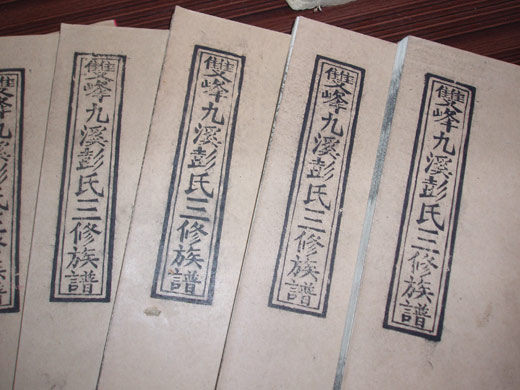 雙峰九溪彭氏三修族譜
雙峰九溪彭氏三修族譜
雙峰九溪彭氏三修族譜
雙峰九溪彭氏三修族譜
雙峰九溪彭氏三修族譜